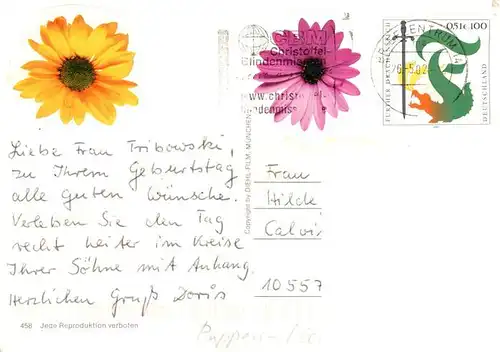 CBM
Christoffel-
Blindenmission
www.christoffel-
blindenmiss
FURTHER DRACHENSTICH
0,51€ 100
DEUTSCHLAND
ZENTRUM
26.-5.02
Liebe Frau Tribowski,
zu Ihrem Geburtstag
alle guten Wünsche.
Verleben Sie den Tag
recht heiter im Kreise
Ihrer Söhne mit Anhang.
Herzlichen Gruß Doris
458 Jede Reproduktion verboten
Copyright by DIEHL-FILM, MÜNCHEN
Frau
Hilde
Calvi
10557